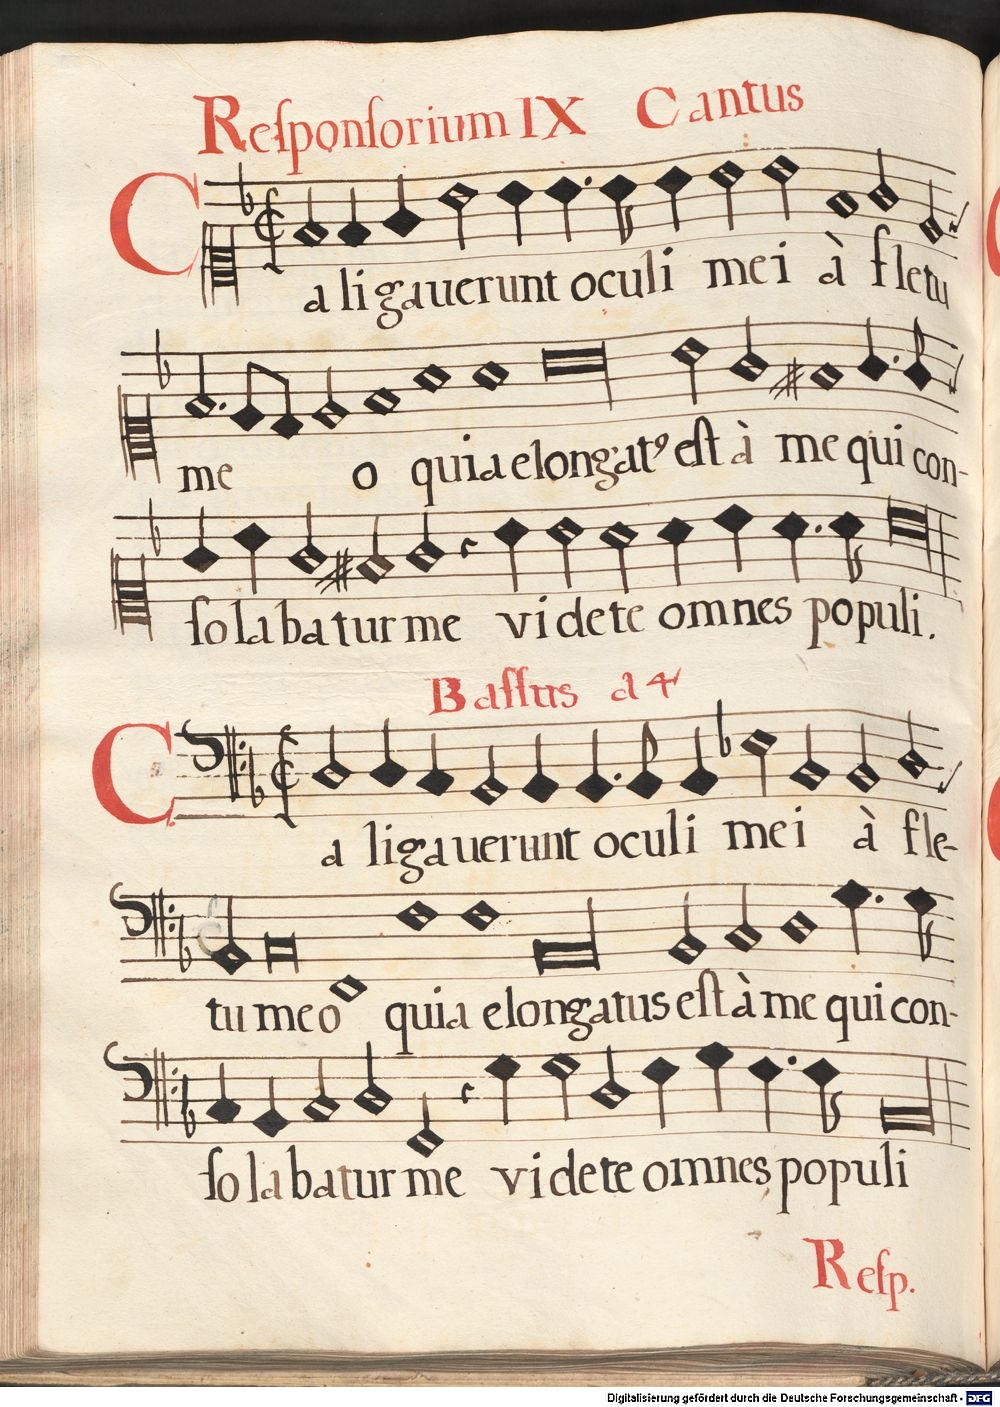 Reſponſorium IX Cantus
Caligauerunt oculi mei à fletu
me o quia elongatꝰ eſt à me qui con-
ſolabatur me videte omnes populi.
Baſſus a 4
Caligauerunt oculi mei à fle-
tu meo quia elongatus eſt à me qui con-
ſolabatur me videte omnes populi
Reſp.
Digitalisierung gefördert durch die Deutsche Forschungsgemeinschaft - DFG